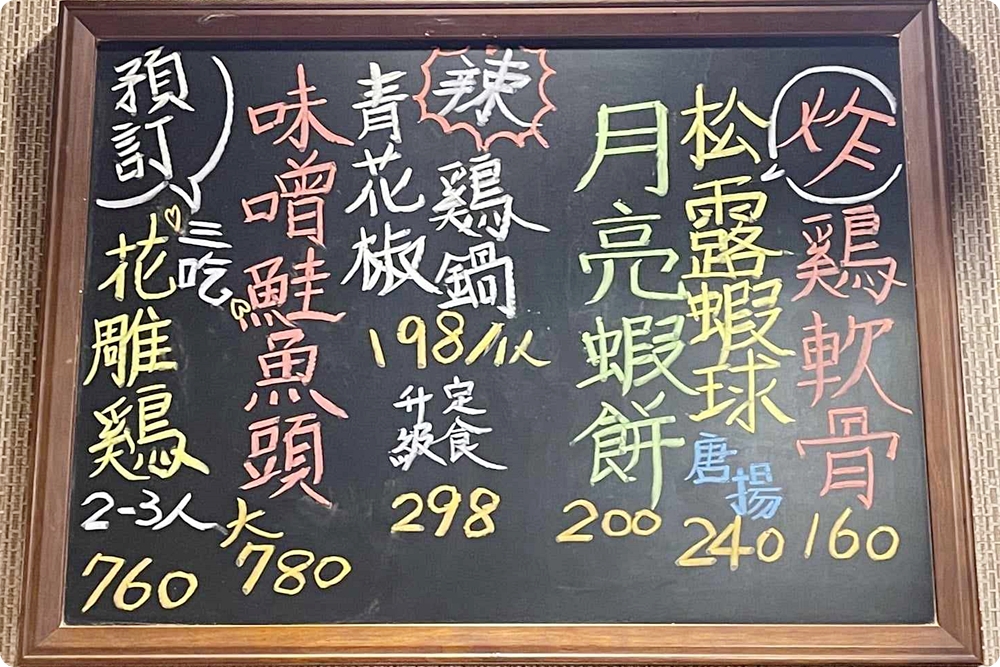 炸
鷄軟骨
160
松露蝦球
唐揚
240
月亮蝦餅
200
辣
鷄鍋
青花椒
198/1人
定食
升級
298
味噌鮭魚頭
大
780
預訂
三吃
花雕鷄
2-3人
760